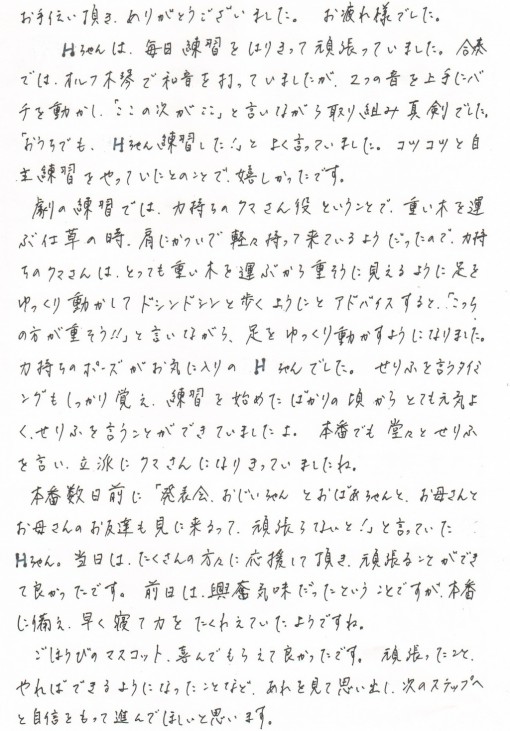 お手伝い頂き、ありがとうございました。 お疲れ様でした。
Hちゃんは、毎日練習をはりきって頑張っていました。合奏
では、オルフ木琴で和音を打っていましたが、2つの音を上手にバ
チを動かし、「ここの次がここ」と言いながら取り組み真剣でした。
「おうちでも、Hちゃん練習した!」とよく言っていました。コツコツと自
主練習をやっていたとのことで、嬉しかったです。
劇の練習では、力持ちのクマさん役ということで、重い木を運
ぶ仕草の時、肩にかついで軽々持って来ているようだったので、力持
ちのクマさんは、とっても重い木を運ぶから重そうに見えるように足を
ゆっくり動かしてドシンドシンと歩くようにとアドバイスすると、「こっち
の方が重そう!!」と言いながら、足をゆっくり動かすようになりました。
力持ちのポーズがお気に入りのHちゃんでした。 せりふを言うタイミ
ングもしっかり覚え、練習を始めたばかりの頃からとても元気よ
く、せりふを言うことができていましたよ。 本番でも堂々とせりふ
を言い、立派にクマさんになりきっていましたね。
本番数日前に「発表会、おじいちゃんとおばあちゃんと、お母さんと
お母さんのお友達も見に来るって、頑張らないと!」と言っていた
Hちゃん。当日は、たくさんの方々に応援して頂き、頑張ることができ
て良かったです。 前日は、興奮気味だったということですが、本番
に備え、早く寝て力をたくわえていたようですね。
ごほうびのマスコット、喜んでもらえて良かったです。 頑張ったこと、
やればできるようになったことなど、あれを見て思い出し、次のステップへ
と自信をもって進んでほしいと思います。